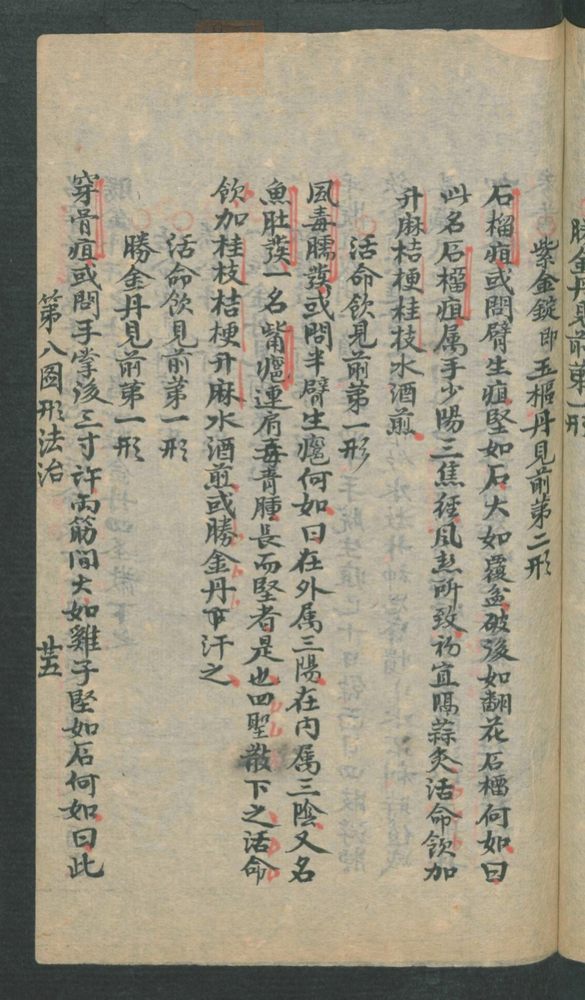 勝金丹見前第一形
紫金錠即玉樞丹見前第二形
石榴疽或問臂生疽堅如石大如覆盆破後如翻花石榴何如曰
此名石榴疽属手少陽三焦經風热所致初宜隔蒜灸活命飲加
升麻桔梗桂枝水酒煎
活命飲見前第一形
風毒臑發或問半臂生瘋何如曰在外属三陽在内属三陰又名
魚肚發一名觜瘋連肩毒青腫長而堅者是也四聖散下之活命
飲加桂枝桔梗升麻水酒煎或勝金丹下汗之
活命飲見前第一形
勝金丹見前第一形
穿骨疽或問手掌後三寸許两筋間大如雞子堅如石何如曰此
第八圖形法治 廿五